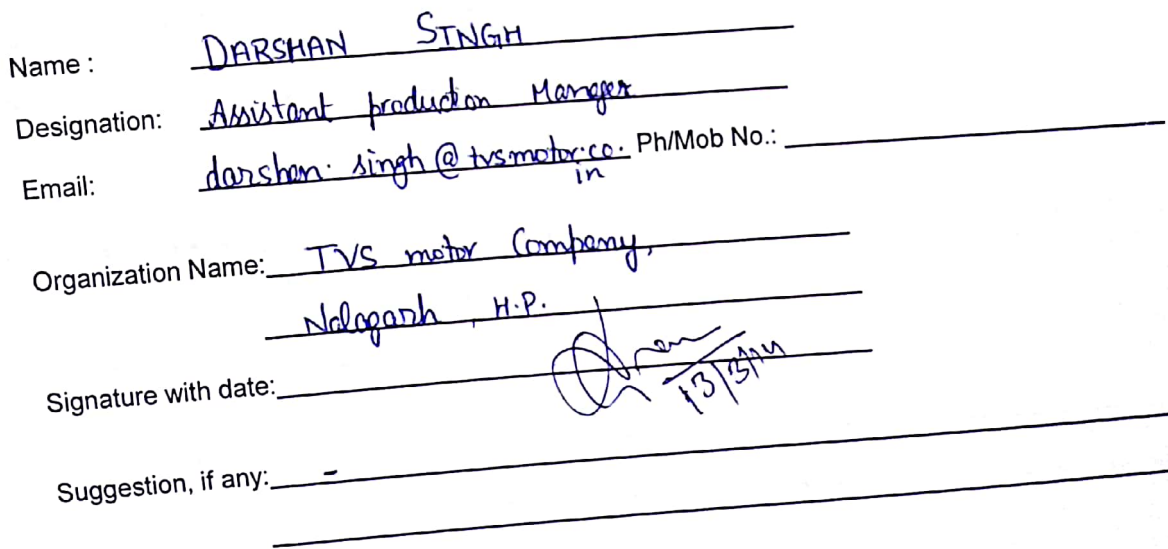 Name : DARSHAN SINGH
Designation: Assistant production Manger
Email: darshan.singh@tvsmotor.co. Ph/Mob No.:
in
Organization Name: TVS motor Company,
Nalagarh, H.P.
Signature with date: 13/3/14
Suggestion, if any: -